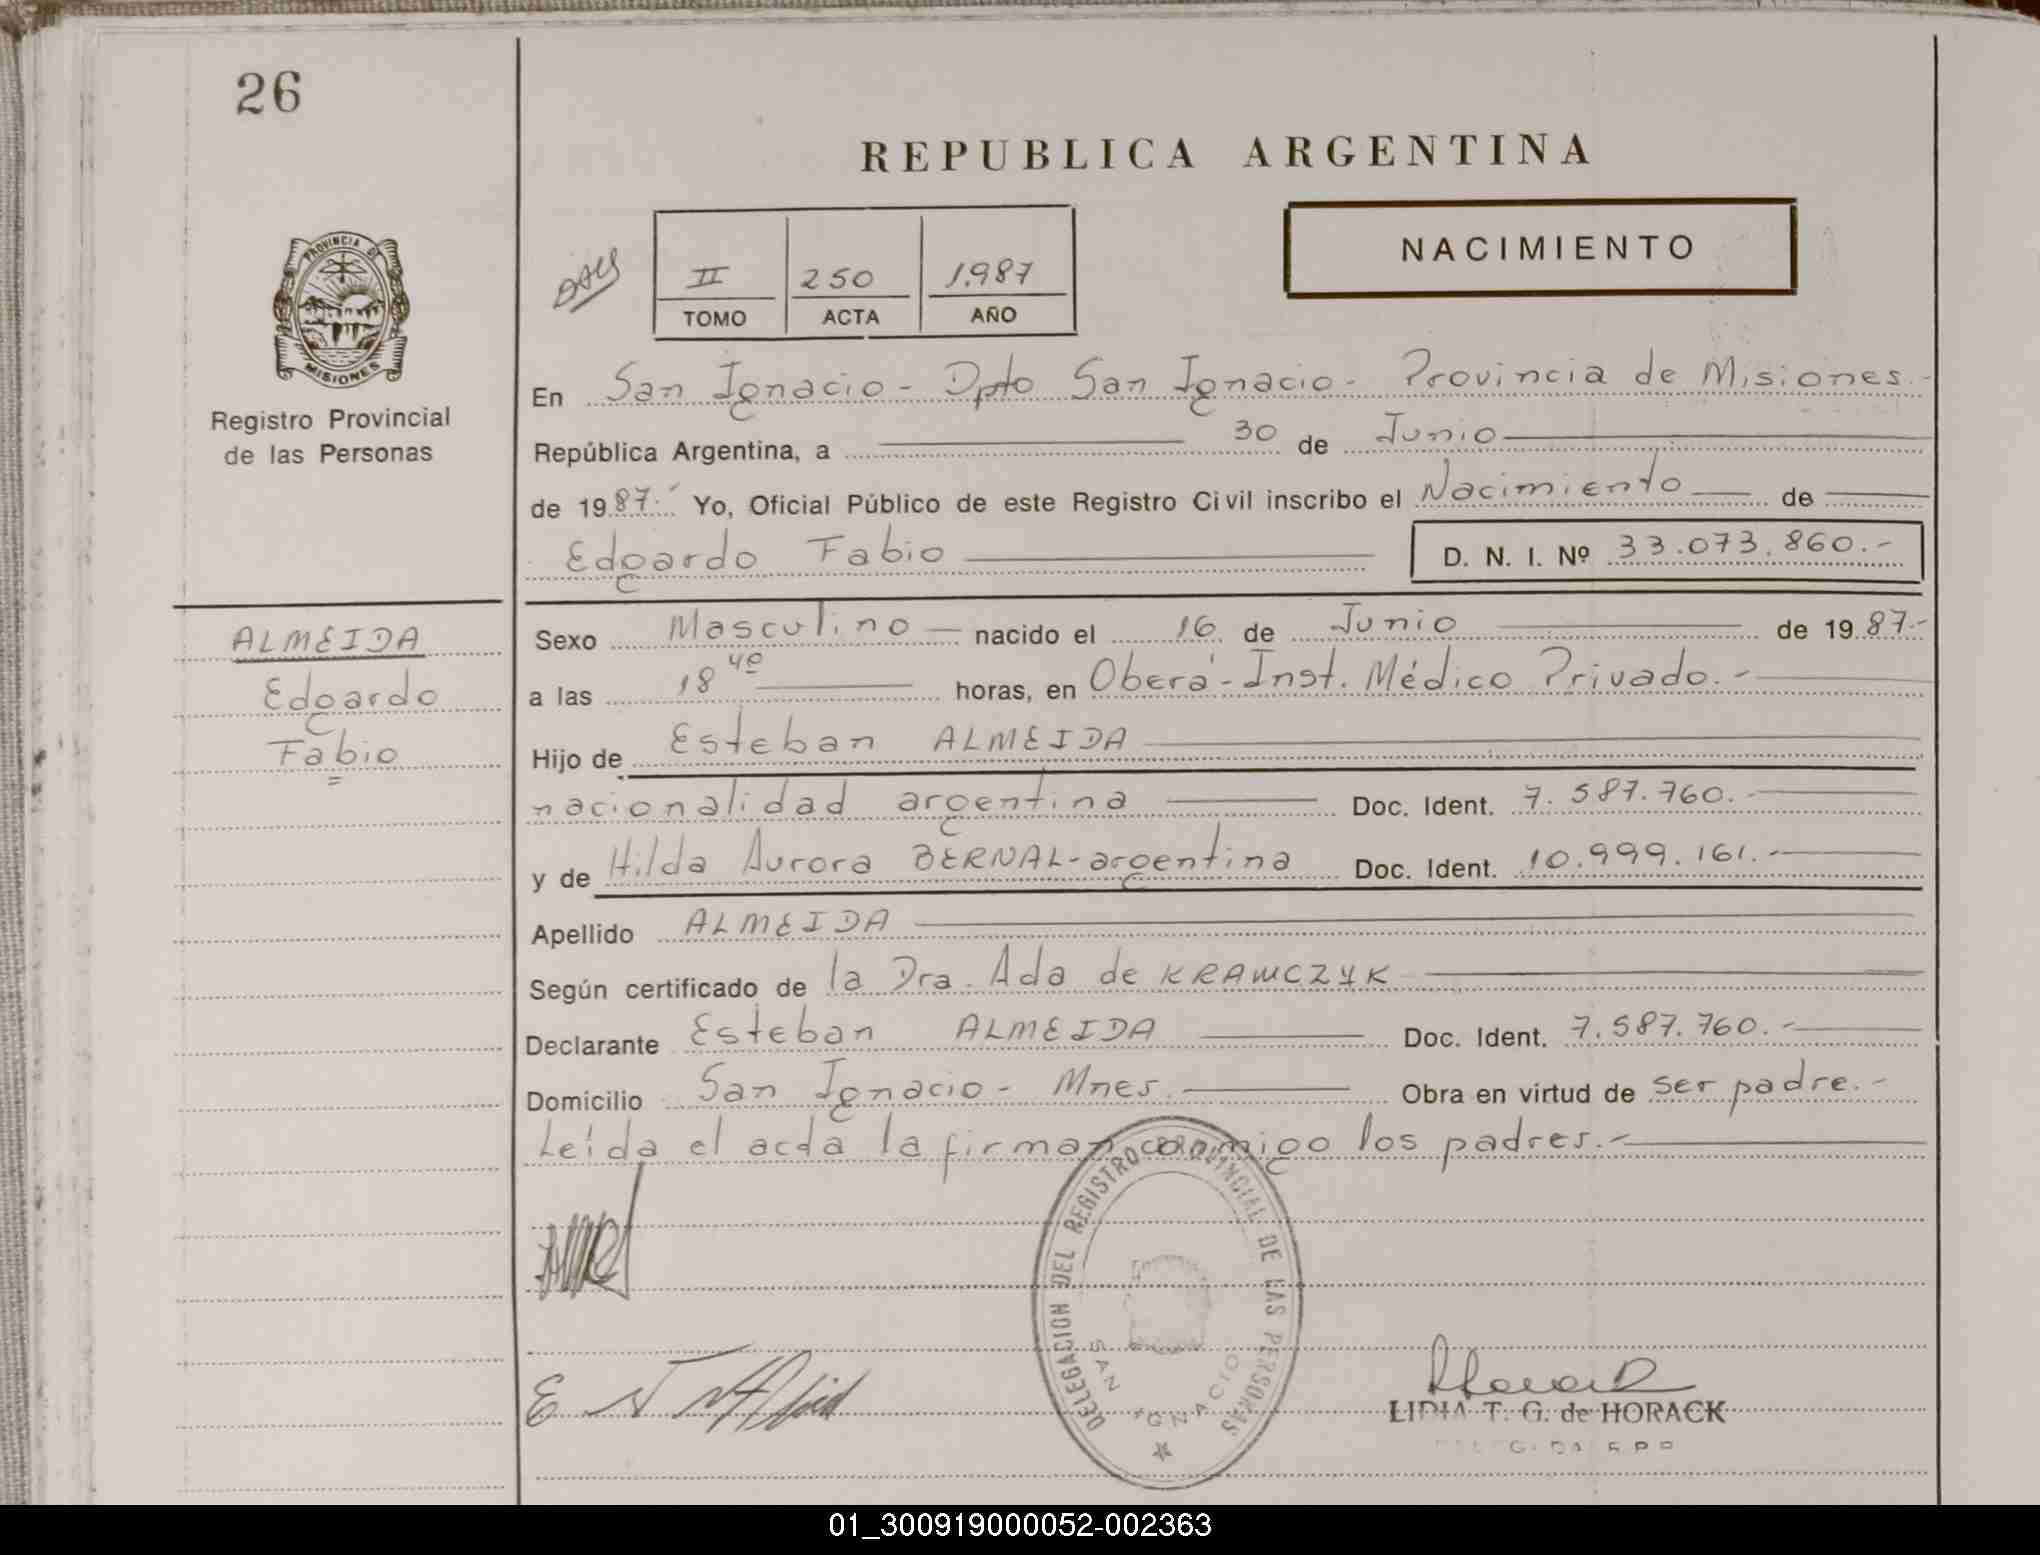 26
REPUBLICA ARGENTINA
NACIMIENTO
II 250 1.987
TOMO ACTA AÑO
PROVINCIA DE
MISIONES
Registro Provincial
de las Personas
En San Ignacio - Dpto San Ignacio - Provincia de Misiones.-
República Argentina, a 30 de Junio
de 1987.- Yo, Oficial Público de este Registro Civil inscribo el Nacimiento de
Edgardo Fabio D. N. I. Nº 33.073.860.-
ALMEIDA
Edgardo
Fabio
Sexo Masculino nacido el 16 de Junio de 1987.-
a las 18 40 horas, en Oberá - Inst. Médico Privado.-
Hijo de Esteban ALMEIDA
nacionalidad argentina Doc. Ident. 7.587.760.-
y de Hilda Aurora BERNAL - argentina Doc. Ident. 10.999.161.-
Apellido ALMEIDA
Según certificado de la Dra. Ada de KRAWCZYK
Declarante Esteban ALMEIDA Doc. Ident. 7.587.760.-
Domicilio San Ignacio - Mnes. Obra en virtud de ser padre.-
Leída el acta la firman conmigo los padres.-
DELEGACION DEL REGISTRO PROVINCIAL DE LAS PERSONAS
SAN IGNACIO
LIDIA T. G. de HORACK
01_300919000052-002363